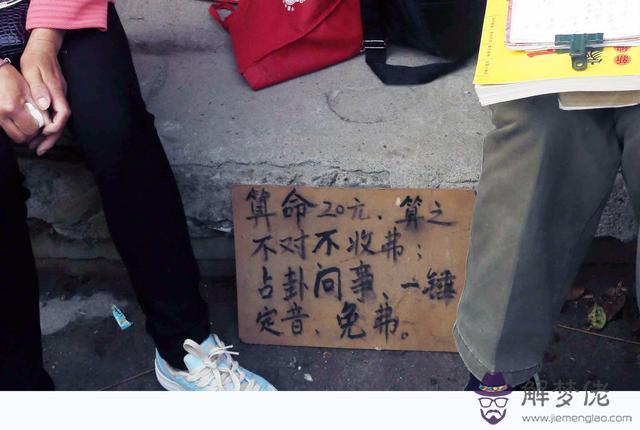 算命20元、算之
不对不收弗；
占卦问事、一锤
定音、免弗。
解梦佬
www.jiemenglao.com